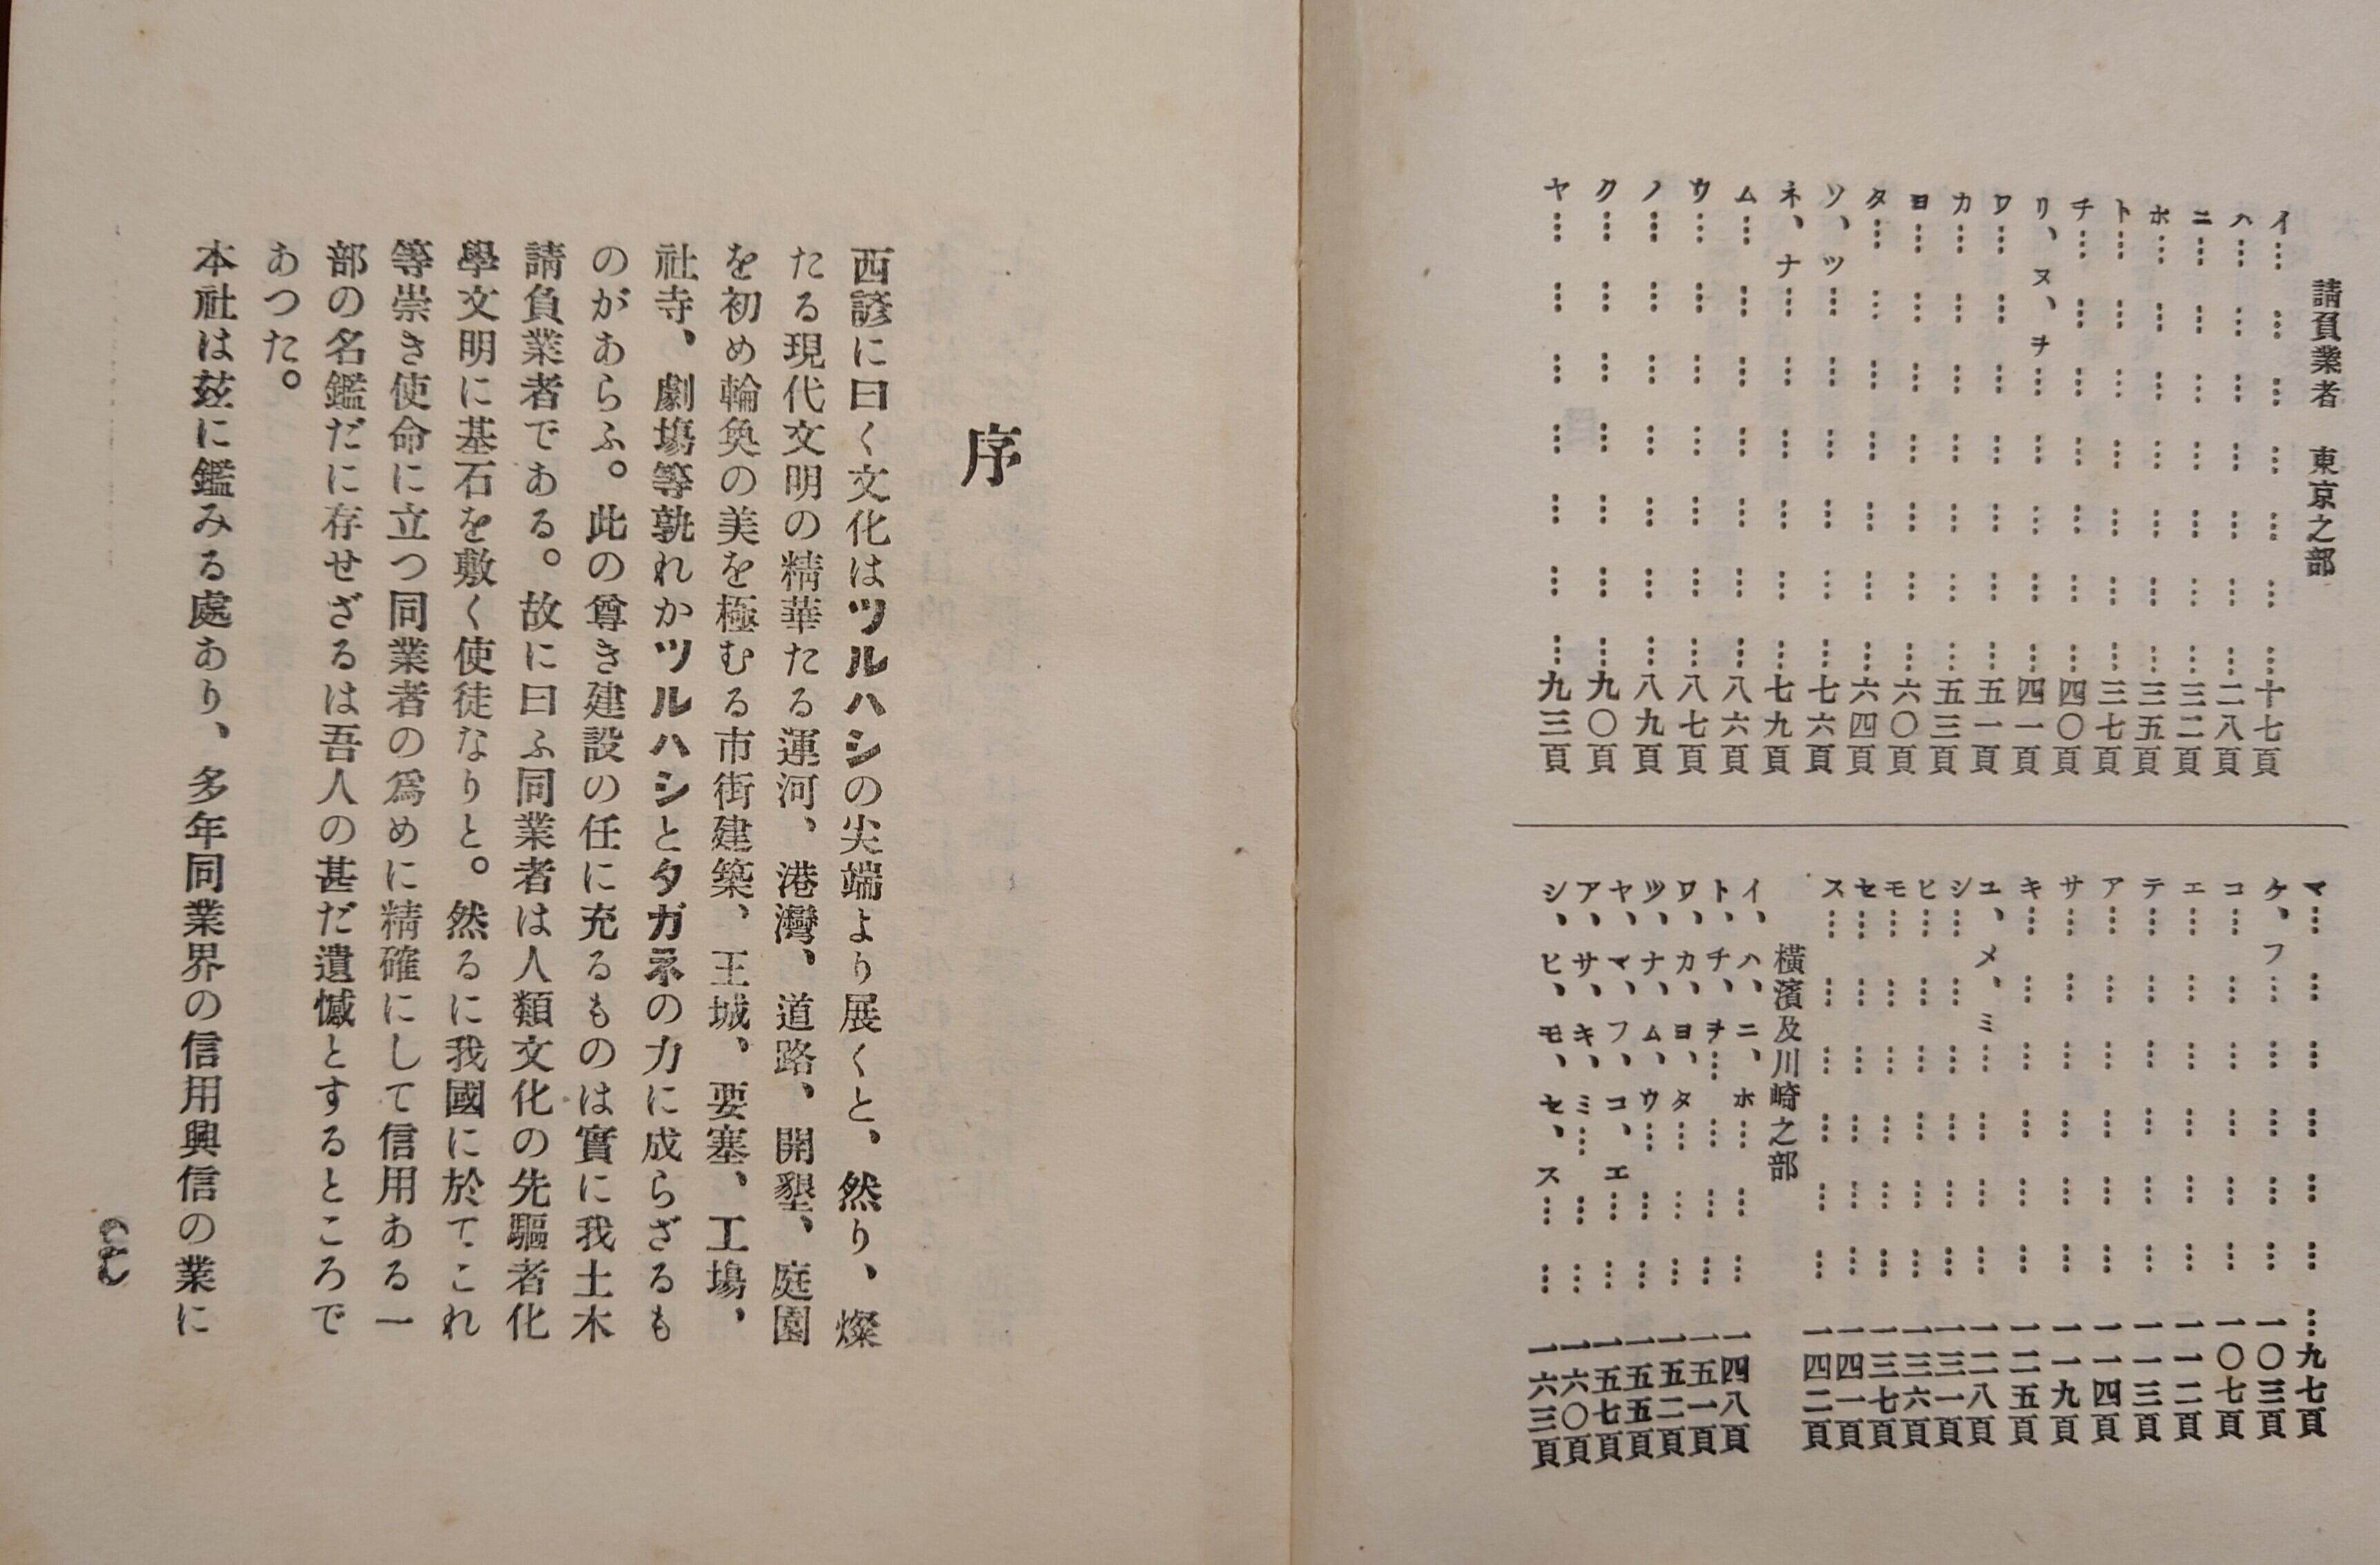 請負業者　東京之部
イ…………………十七頁
ハ…………………二八頁
ニ…………………三二頁
ホ…………………三五頁
ト…………………三七頁
チ…………………四〇頁
リ、ヌ、ヲ…………………四一頁
ワ…………………五一頁
カ…………………五三頁
ヨ…………………六〇頁
タ…………………六四頁
ソ、ツ…………………七六頁
ネ、ナ…………………七九頁
ム…………………八六頁
ウ…………………八七頁
ノ…………………八九頁
ク…………………九〇頁
ヤ…………………九三頁
マ…………………九七頁
ケ、フ…………………一〇三頁
コ…………………一〇七頁
エ…………………一一二頁
テ…………………一一三頁
ア…………………一一四頁
サ…………………一一九頁
キ…………………一二五頁
ユ、メ、ミ…………………一二八頁
シ…………………一三一頁
ヒ…………………一三六頁
モ…………………一三七頁
セ…………………一四一頁
ス…………………一四二頁
横濱及川崎之部
イ、ハ、ニ、ホ…………一四八頁
ト、チ、ヲ…………一五一頁
ワ、カ、ヨ、タ…………一五二頁
ツ、ナ、ム、ウ…………一五五頁
ヤ、マ、フ、コ、エ…………一五七頁
ア、サ、キ、ミ…………一六〇頁
シ、ヒ、モ、セ、ス…………一六三頁
序
西諺に曰く文化はツルハシの尖端より展くと、然り、燦
たる現代文明の精華たる運河、港灣、道路、開墾、庭園
を初め輪奐の美を極むる市街建築、王城、要塞、工場、
社寺、劇塲等孰れかツルハシとタガネの力に成らざるも
のがあらふ。此の尊き建設の任に充るものは實に我土木
請負業者である。故に曰ふ同業者は人類文化の先驅者化
學文明に基石を敷く使徒なりと。然るに我國に於てこれ
等崇き使命に立つ同業者の爲めに精確にして信用ある一
部の名鑑だに存せざるは吾人の甚だ遺憾とするところで
あつた。
本社は玆に鑑みる處あり、多年同業界の信用興信の業に